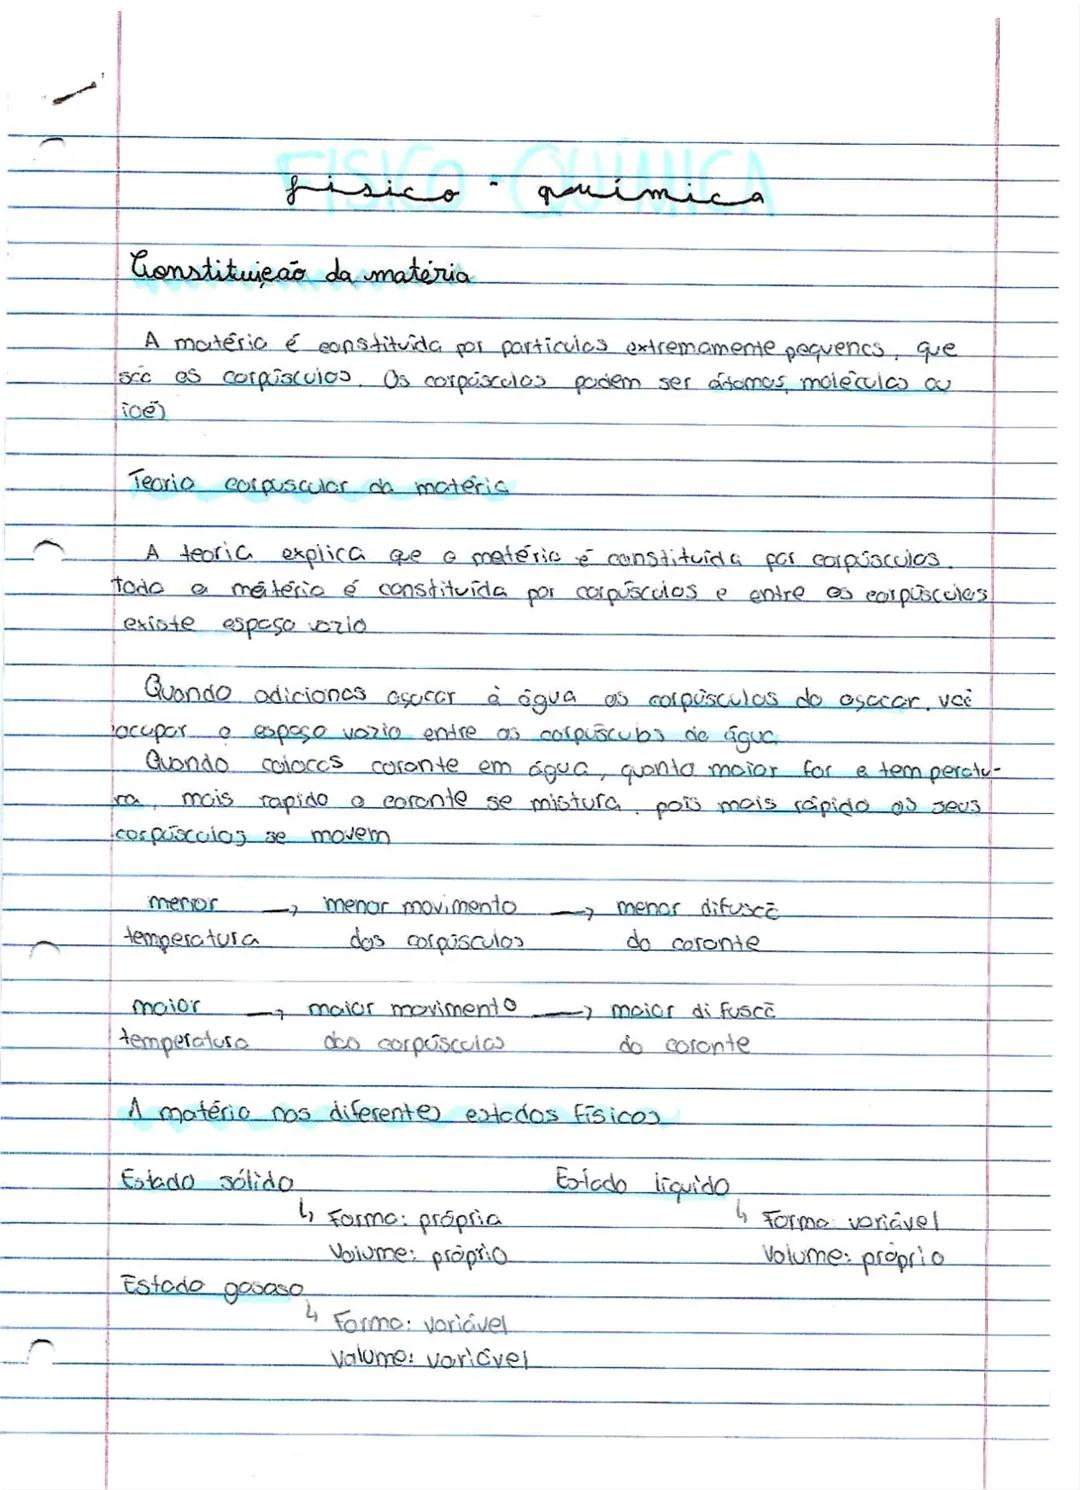 FISICO-QUÍMICA
físico - química
Constituição da matéria
A matéria é constituída por partículas extremamente pequenas, que
são os corpúsculos. Os corpúsculos podem ser átomos, moléculas ou
iões
Teoria corpuscular da matéria
A teoria explica que a matéria é constituída por corpúsculos.
Toda a matéria é constituída por corpúsculos e entre os corpúsculos
existe espaço vazio
Quando adicionas açúcar à água os corpúsculos do açúcar, vai
ocupar o espaço vazio entre os corpúsculos de água
Quando colocas corante em água, quanto maior for a temperatu-
ra, mais rapido o corante se mistura, pois mais rápido os seus
corpúsculos se movem
menor → menor movimento → menor difusão
temperatura dos corpúsculos do corante
maior → maior movimento → maior difusão
temperatura dos corpúsculos do corante
A matéria nos diferentes estados físicos
Estado sólido Estado líquido
↳ Forma: própria ↳ Forma: variável
Volume: próprio Volume: próprio
Estado gasoso
↳ Forma: variável
Volume: variável